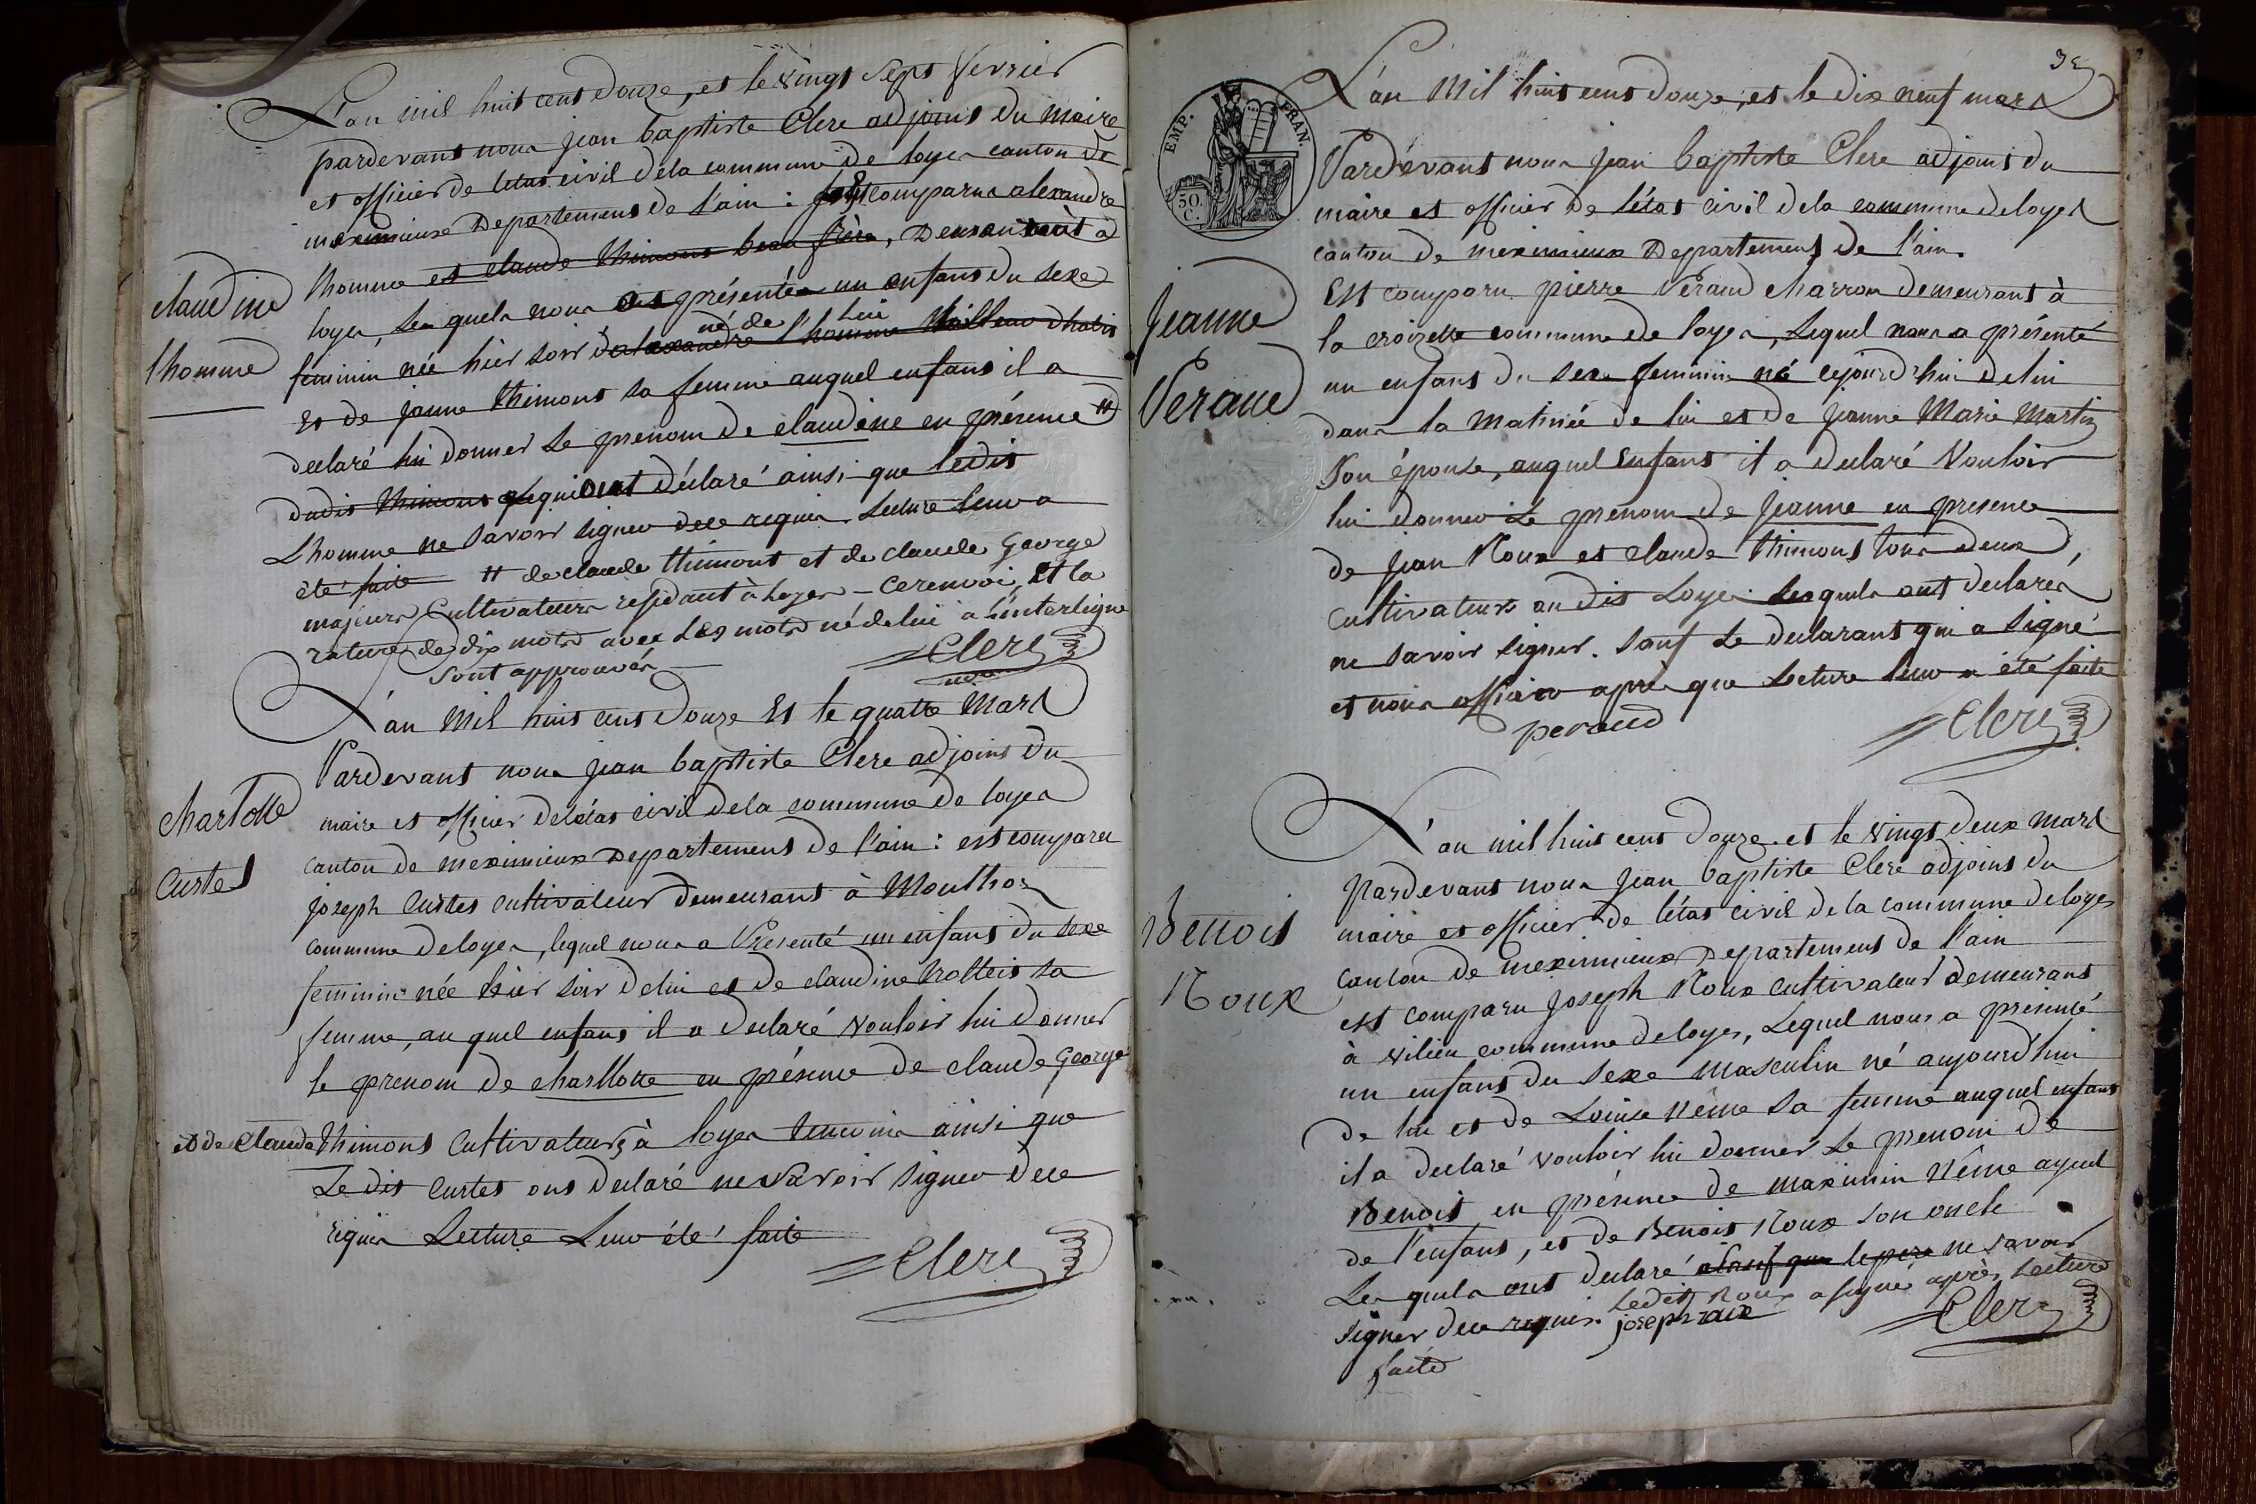 L'an mil huit cent douze, et le vingt sept fevrier
pardevant nous jean baptiste Clere adjoint du maire
et officier de letat civil dela commune de loyes canton de
meximieux Departement de l'ain : est comparus alexandre
lhomme et claude thimont beau frère, Demeurant à
loyes, les quels nous a présentés un enfant du sexe
né de lui
feminin née hier soir d'alexandre l'homme tailleur d'habit
et de janne thimont sa femme auquel enfant il a
declaré lui donner le prenom de claudine en présence #
dudit thimont qui ont déclaré ainsi que ledit
Lhomme ne savoir signer dece requis. Lecture leur a
été faite # de claude thimont et de claude George
majeurs Cultivateurs residant à Loyes - Cerenvoi, et la
rature de dix mots avec les mots né de lui à l'interligne
sont approuvés
Clere
claudine
lhomme
L'an Mil huit cent Douze Et le quatre Mars
Pardevant nous jean baptiste Clere adjoint du
maire et officier deletat civil dela commune de loyes
canton de meximieux Departement de l'ain : est comparu
joseph Curtet cultivateur demeurant à Monthoz
commune deloyes, lequel nous a Presenté un enfant du sexe
feminin née hier soir delui et de claudine trotteis sa
femme, au quel enfant il a declaré vouloir lui donner
le prenom de charllotte en présence de claude George
et de claude Thimont Cultivateurs à loyes temoins ainsi que
Le dit Curtet ont declaré ne savoir signer dece
requis Lecture Leur été faite
Clere
charlotte
Curtet
3
L'an Mil huit cent douze, et le dix neuf mars
Pardevant nous jean baptiste Clere adjoint du
maire et officier de l'état civil dela commune deloyes
canton de meximieux Departement de l'ain.
Est comparu pierre Peraud charron demeurant à
la croizette commune de loyes, lequel nous a présenté
un enfant du sexe feminin né cejourd'hui delui
dans la matinée de lui et de jeanne Marie Martin
son épouse, auquel enfant il a declaré Vouloir
lui donner le prenom de jeanne en presence
de jean Roux et claude thimont tous deux
cultivateurs audit Loyes lesquels ont declarés
ne savoir signer. sauf le declarant qui a signé
et nous officier après que lecture leur a été faite
peraud
Clere
EMP. FRAN.
50.
C.
jeanne
Peraud
L'an mil huit cent douze et le vingt deux mars
pardevant nous jean baptiste Clere adjoint du
maire et officier de l'état civil de la commune deloyes
canton de meximieux Departement de l'ain
est comparu joseph Roux cultivateur demeurant
à vilieu commune deloyes, Lequel nous a présenté
un enfant du sexe masculin né aujourd'hui
de lui et de Louise Nême sa femme auquel enfant
il a declaré vouloir lui donner le prenom de
Benoit en présence de maximin Nême ayeul
de l'enfant, et de Benoit Roux son oncle
Les quels ont declaré sauf que le pere ne savoir
signer dece requis. Ledit Roux a signé après Lecture
faite
joseph roux
Clere
Benoit
Roux